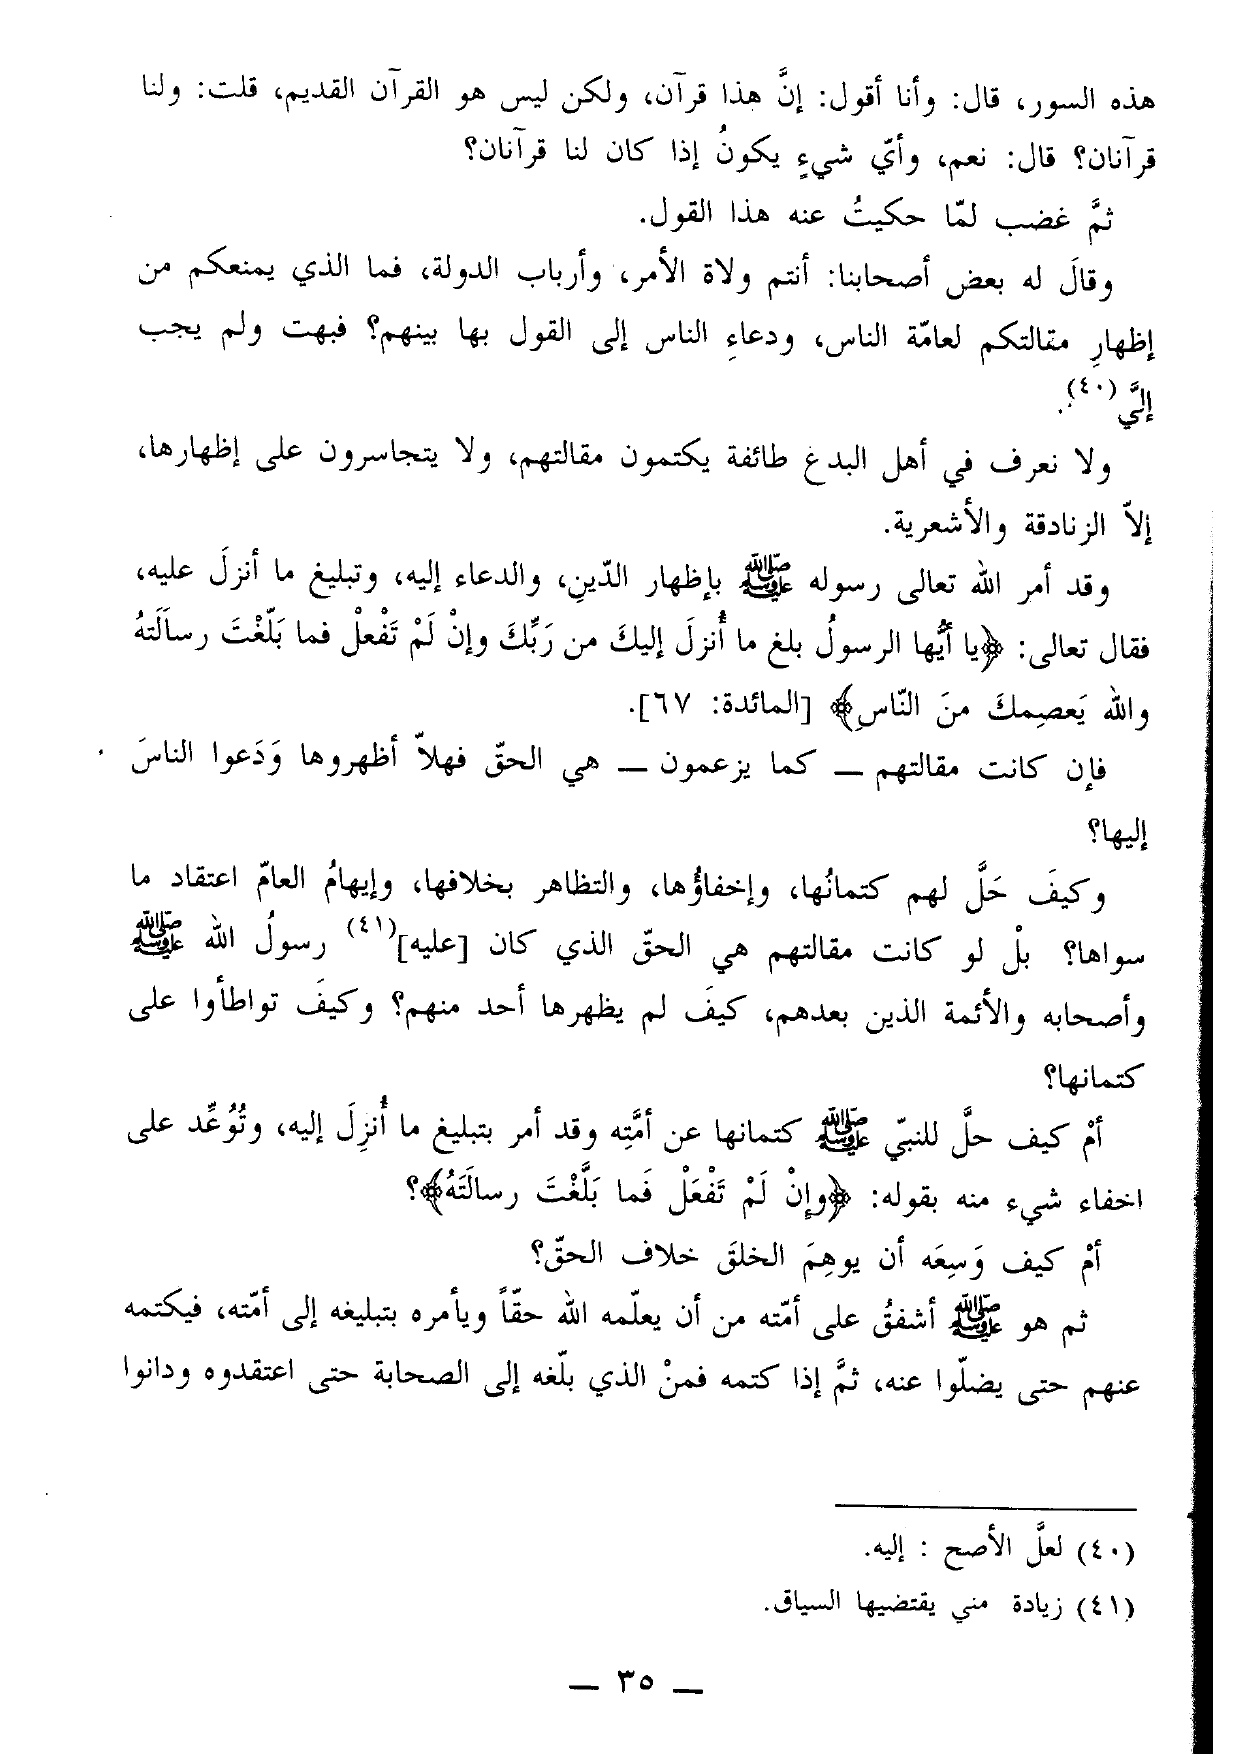 هذه السور، قال: وأنا أقول: إنَّ هذا قرآن، ولكن ليس هو القرآن القديم، قلت: ولنا
قرآنان؟ قال: نعم، وأيّ شيءٍ يكونُ إذا كان لنا قرآنان؟
ثمَّ غضب لمّا حكيتُ عنه هذا القول.
وقالَ له بعض أصحابنا: أنتم ولاة الأمر، وأرباب الدولة، فما الذي يمنعكم من
إظهارِ مقالتكم لعامّة الناس، ودعاءِ الناس إلى القول بها بينهم؟ فبهت ولم يجب
إليَّ (٤٠).
ولا نعرف في أهل البدع طائفة يكتمون مقالتهم، ولا يتجاسرون على إظهارها،
إلاّ الزنادقة والأشعرية.
وقد أمر الله تعالى رسوله ﷺ بإظهار الدّينِ، والدعاء إليه، وتبليغ ما أنزلَ عليه،
فقال تعالى: ﴿يا أيُّها الرسولُ بلغ ما أُنزلَ إليكَ من رَبِّكَ وإنْ لَمْ تَفْعلْ فما بَلّغْتَ رسالَتهُ
والله يَعصِمكَ منَ النّاسِ﴾ [المائدة: ٦٧].
فإن كانت مقالتهم — كما يزعمون — هي الحقّ فهلاّ أظهروها وَدَعوا الناسَ
إليها؟
وكيفَ حَلَّ لهم كتمانُها، وإخفاؤُها، والتظاهر بخلافها، وإيهامُ العامّ اعتقاد ما
سواها؟ بلْ لو كانت مقالتهم هي الحقّ الذي كان [عليه](٤١) رسولُ الله ﷺ
وأصحابه والأئمة الذين بعدهم، كيفَ لم يظهرها أحد منهم؟ وكيفَ تواطأوا على
كتمانها؟
أمْ كيف حلَّ للنبيّ ﷺ كتمانها عن أمَّتِه وقد أمر بتبليغ ما أُنزِلَ إليه، وتُوُعِّد على
اخفاء شيء منه بقوله: ﴿وإنْ لَمْ تَفْعَلْ فَما بَلَّغْتَ رسالَتَهُ﴾؟
أمْ كيف وَسِعَه أن يوهِمَ الخلقَ خلاف الحقّ؟
ثم هو ﷺ أشفقُ على أمّته من أن يعلّمه الله حقّاً ويأمره بتبليغه إلى أمّته، فيكتمه
عنهم حتى يضلّوا عنه، ثمَّ إذا كتمه فمنْ الذي بلّغه إلى الصحابة حتى اعتقدوه ودانوا
(٤٠) لعلَّ الأصح : إليه.
(٤١) زيادة مني يقتضيها السياق.
— ٣٥ —